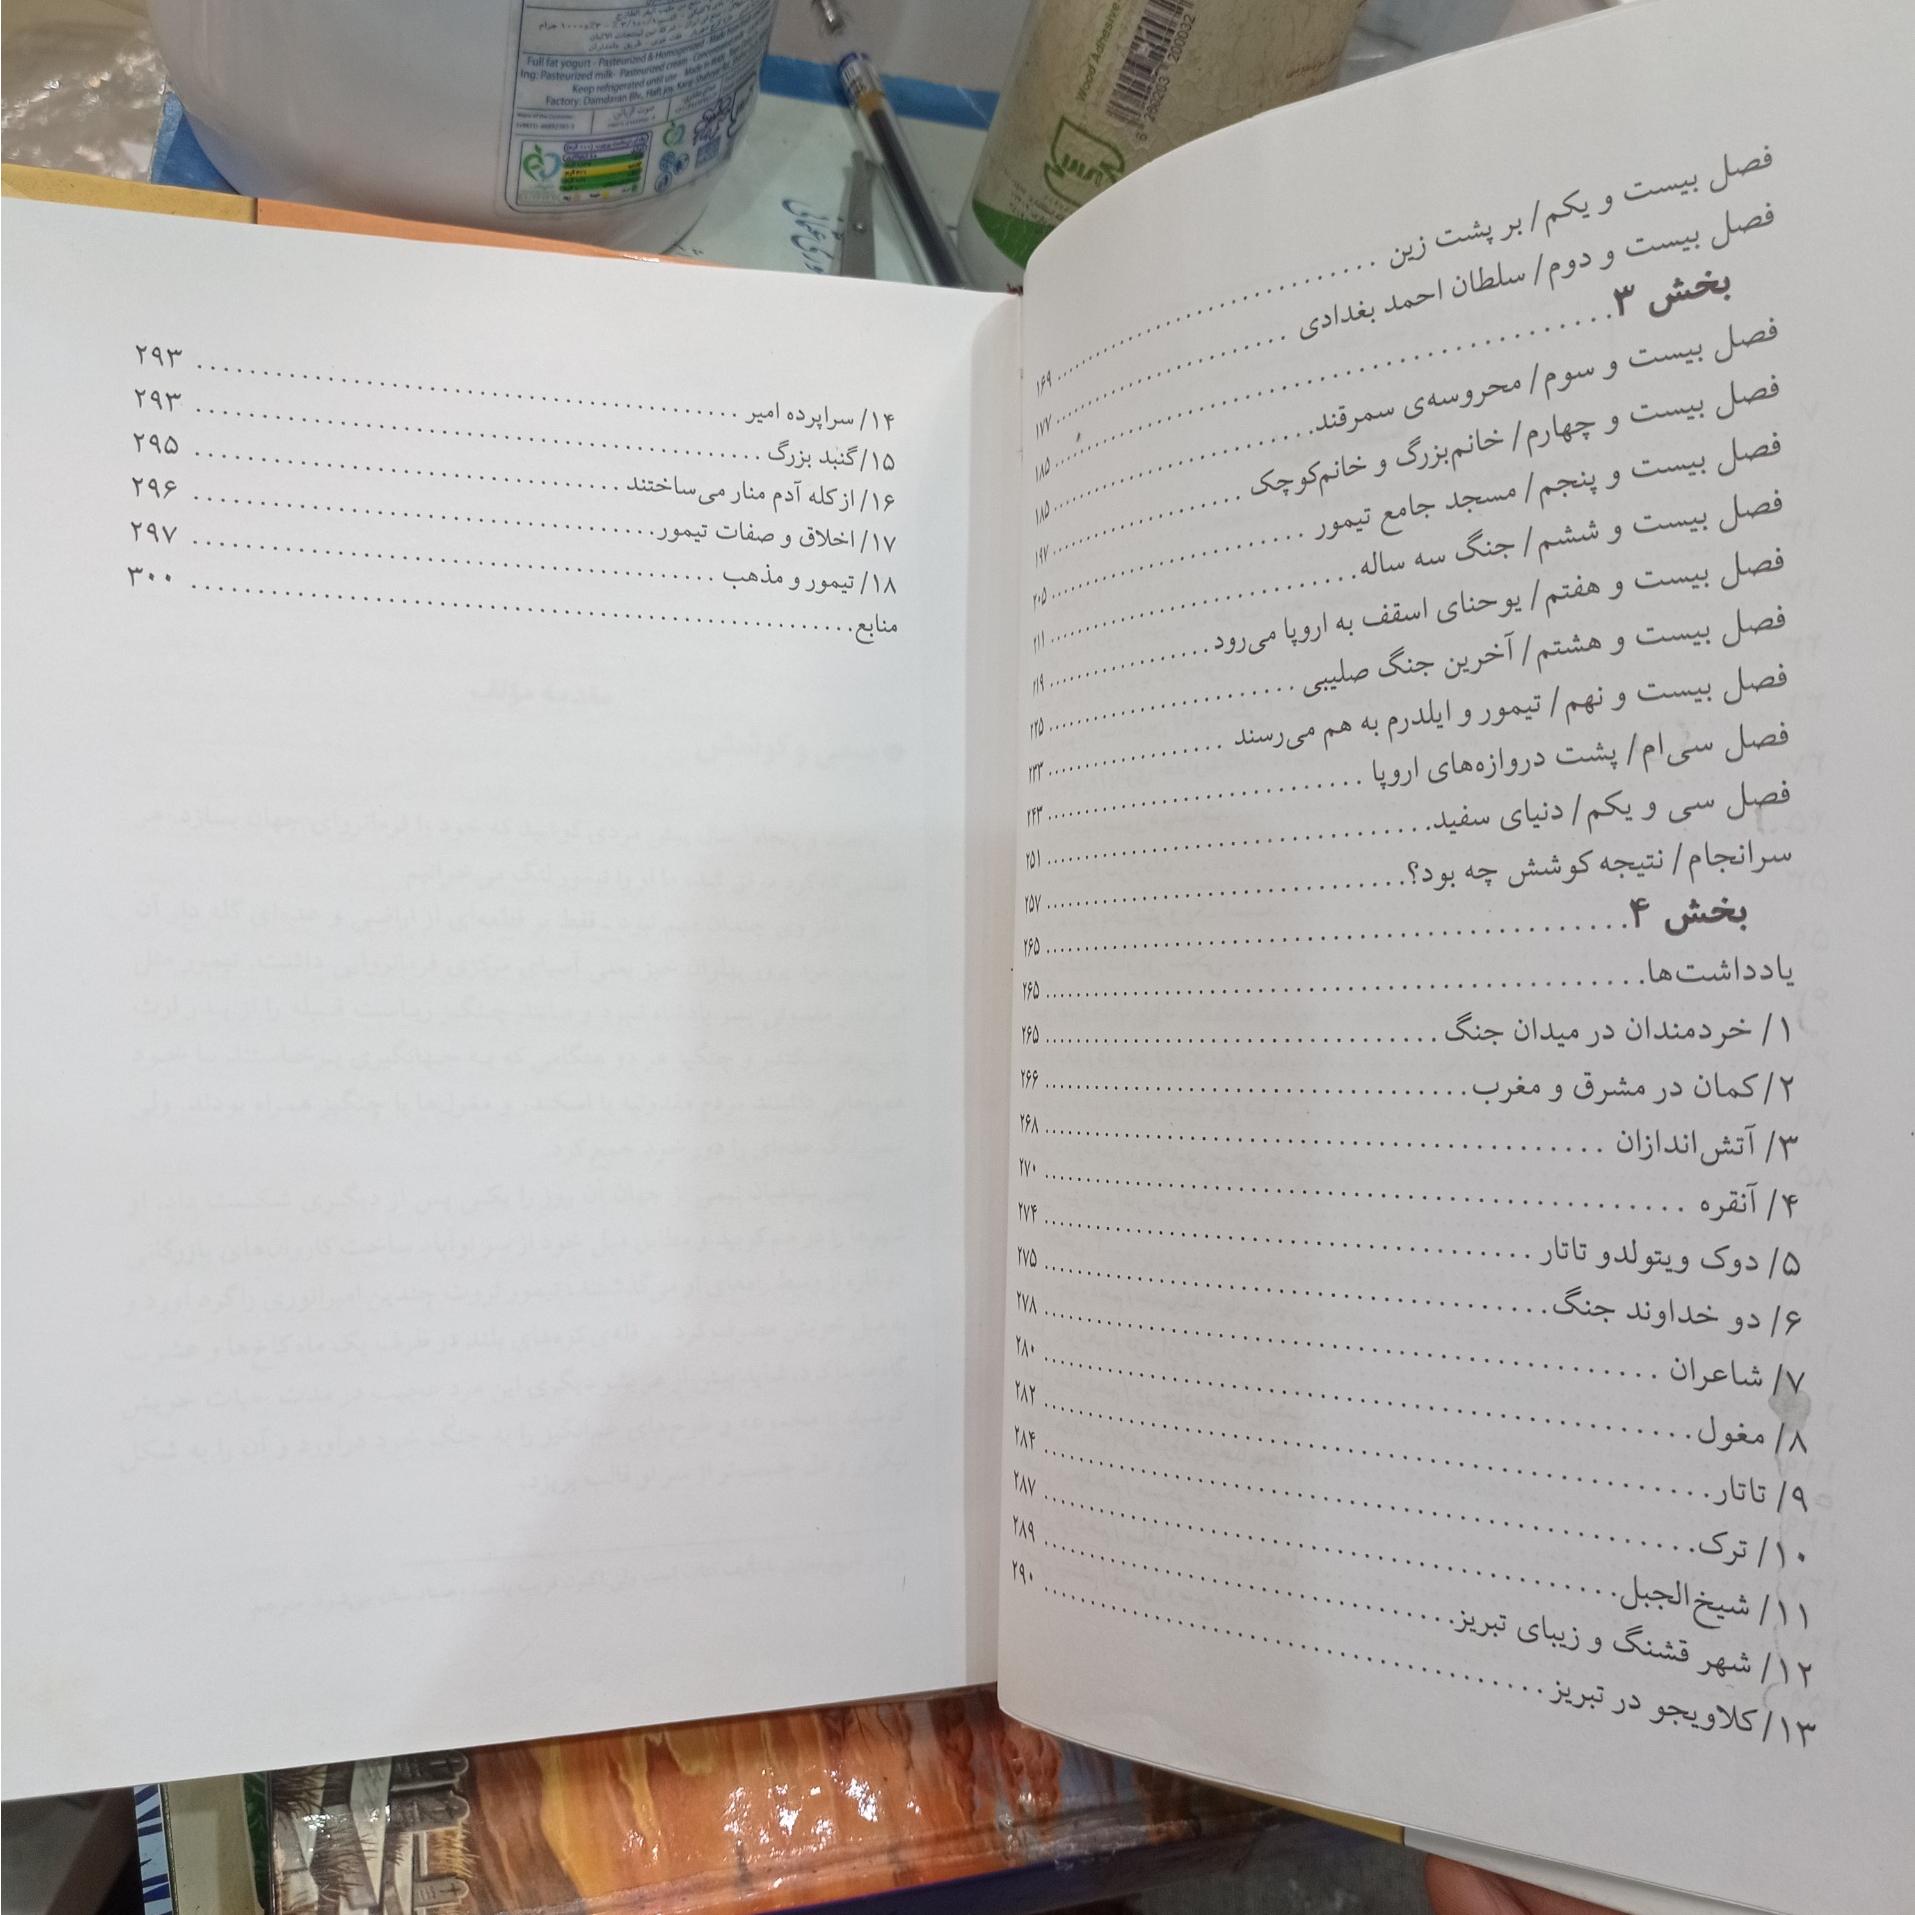 فصل بیست و یکم/ بر پشت زین ۱۶۹
فصل بیست و دوم/ سلطان احمد بغدادی ۱۷۷
بخش ۳ ۱۸۵
فصل بیست و سوم/ محروسه‌ی سمرقند ۱۸۵
فصل بیست و چهارم/ خانم‌بزرگ و خانم‌کوچک ۱۹۷
فصل بیست و پنجم/ مسجد جامع تیمور ۲۰۵
فصل بیست و ششم/ جنگ سه ساله ۲۱۱
فصل بیست و هفتم/ یوحنای اسقف به اروپا می‌رود ۲۱۹
فصل بیست و هشتم/ آخرین جنگ صلیبی ۲۲۵
فصل بیست و نهم/ تیمور و ایلدرم به هم می‌رسند ۲۳۳
فصل سی‌ام/ پشت دروازه‌های اروپا ۲۴۳
فصل سی و یکم/ دنیای سفید ۲۵۱
سرانجام/ نتیجه کوشش چه بود؟ ۲۵۷
بخش ۴ ۲۶۵
یادداشت‌ها ۲۶۵
۱/ خردمندان در میدان جنگ ۲۶۵
۲/ کمان در مشرق و مغرب ۲۶۶
۳/ آتش‌اندازان ۲۶۸
۴/ آنقره ۲۷۰
۵/ دوک ویتولدو تاتار ۲۷۴
۶/ دو خداوند جنگ ۲۷۵
۷/ شاعران ۲۷۸
۸/ مغول ۲۸۰
۹/ تاتار ۲۸۲
۱۰/ ترک ۲۸۴
۱۱/ شیخ‌الجبل ۲۸۷
۱۲/ شهر قشنگ و زیبای تبریز ۲۸۹
۱۳/ کلاویجو در تبریز ۲۹۰
۱۴/ سراپرده امیر ۲۹۳
۱۵/ گنبد بزرگ ۲۹۳
۱۶/ از کله آدم منار می‌ساختند ۲۹۵
۱۷/ اخلاق و صفات تیمور ۲۹۶
۱۸/ تیمور و مذهب ۲۹۷
منابع ۳۰۰
Full fat yogurt - Pasteurized & Homogenized
Ing: Pasteurized milk- Pasteurized cream
Keep refrigerated until use
Factory: Damdaran Blv., Haft joy,
Wood Adhesive
6 260203 200032